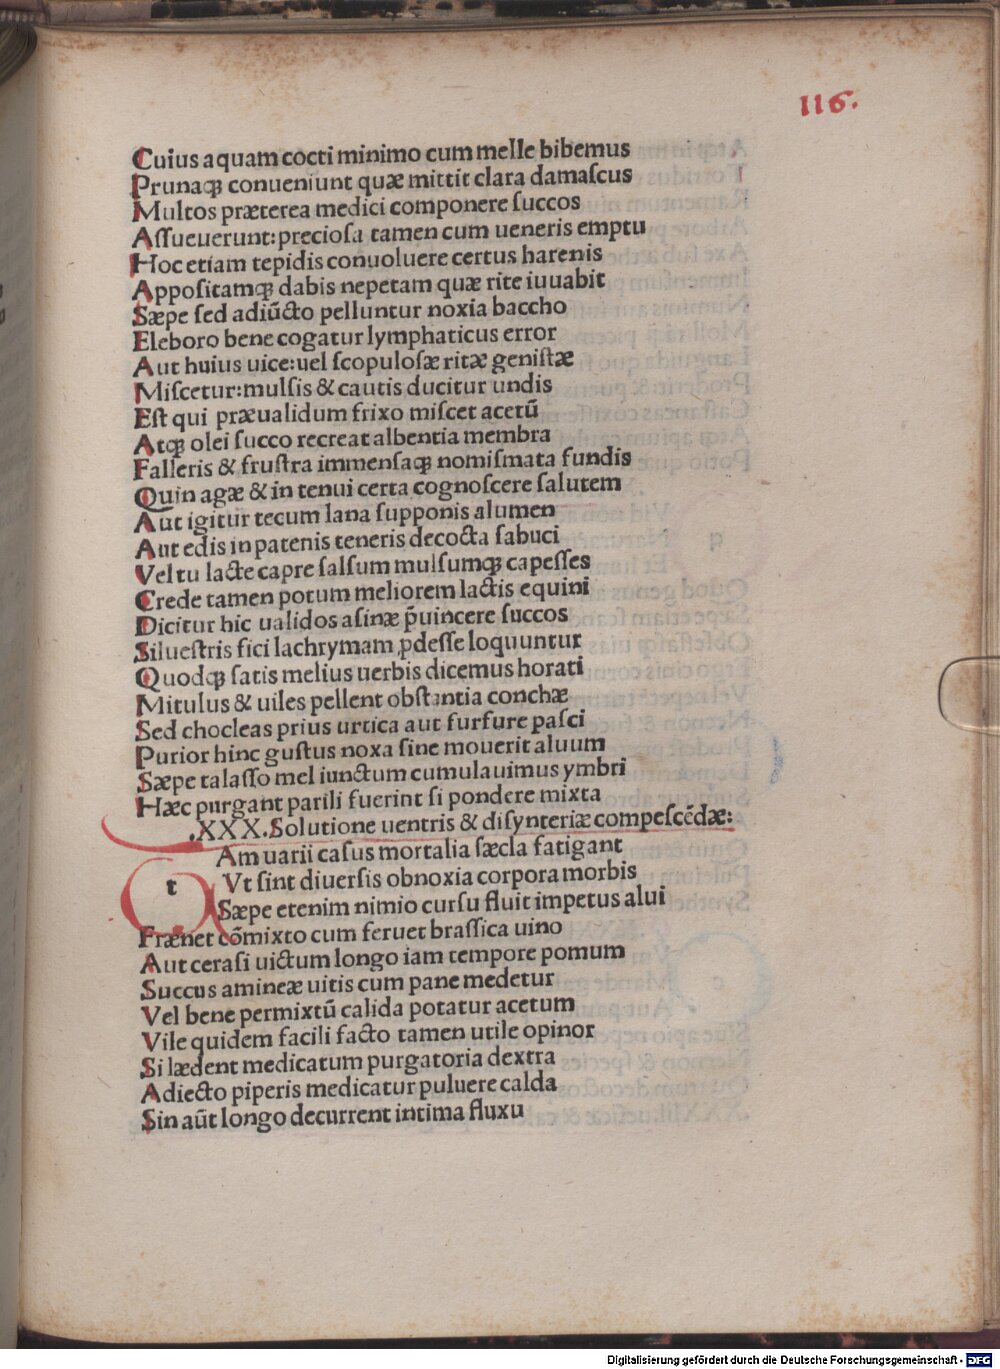 116.
Cuius aquam cocti minimo cum melle bibemus
Prunaqꝫ conueniunt quæ mittit clara damaſcus
Multos præterea medici componere ſuccos
Aſſueuerunt: precioſa tamen cum ueneris emptu
Hoc etiam tepidis conuoluere certus harenis
Appoſitamqꝫ dabis nepetam quæ rite iuuabit
Sæpe ſed adiūcto pelluntur noxia baccho
Eleboro bene cogatur lymphaticus error
Aut huius uice: uel ſcopuloſæ ritæ geniſtæ
Miſcetur: mulſis & cautis ducitur undis
Eſt qui præualidum frixo miſcet acetū
Atqꝫ olei ſucco recreat albentia membra
Falleris & fruſtra immenſaqꝫ nomiſmata fundis
Quin agæ & in tenui certa cognoſcere ſalutem
Aut igitur tecum lana ſupponis alumen
Aut edis in patenis teneris decocta ſabuci
Vel tu lacte capre ſalſum mulſumqꝫ capeſſes
Crede tamen potum meliorem lactis equini
Dicitur hic ualidos aſinæ p̄uincere ſuccos
Silueſtris fici lachrymam ꝓdeſſe loquuntur
Quodqꝫ ſatis melius uerbis dicemus horati
Mitulus & uiles pellent obſtantia conchæ
Sed chocleas prius urtica aut furfure paſci
Purior hinc guſtus noxa ſine mouerit aluum
Sæpe talaſſo mel iunctum cumulauimus ymbri
Hæc purgant parili fuerint ſi pondere mixta
.XXX. Solutione uentris & diſynteriæ compeſcēdæ:
t Am uarii caſus mortalia ſæcla fatigant
Vt ſint diuerſis obnoxia corpora morbis
Sæpe etenim nimio curſu fluit impetus alui
Frænet cōmixto cum feruet braſſica uino
Aut ceraſi uictum longo iam tempore pomum
Succus amineæ uitis cum pane medetur
Vel bene permixtū calida potatur acetum
Vile quidem facili facto tamen utile opinor
Si lædent medicatum purgatoria dextra
Adiecto piperis medicatur puluere calda
Sin aūt longo decurrent intima fluxu
Digitalisierung gefördert durch die Deutsche Forschungsgemeinschaft - DFG